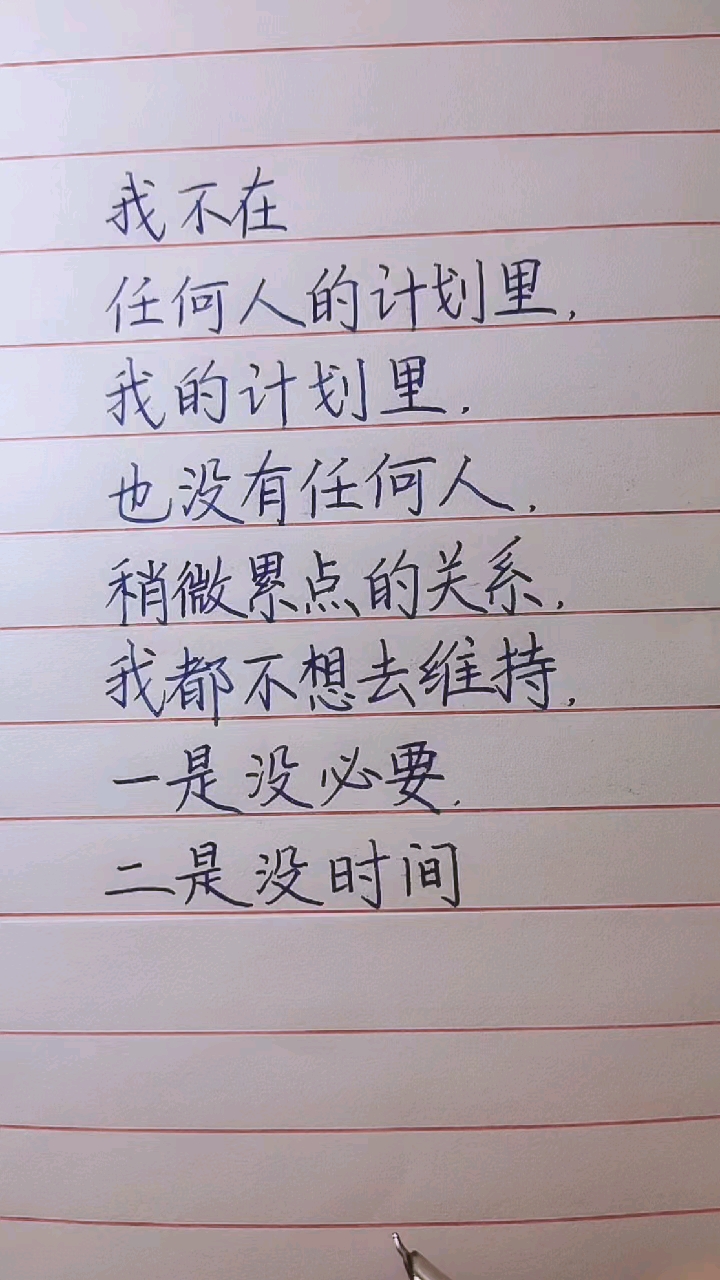 我不在
任何人的计划里,
我的计划里,
也没有任何人,
稍微累点的关系,
我都不想去维持,
一是没必要,
二是没时间